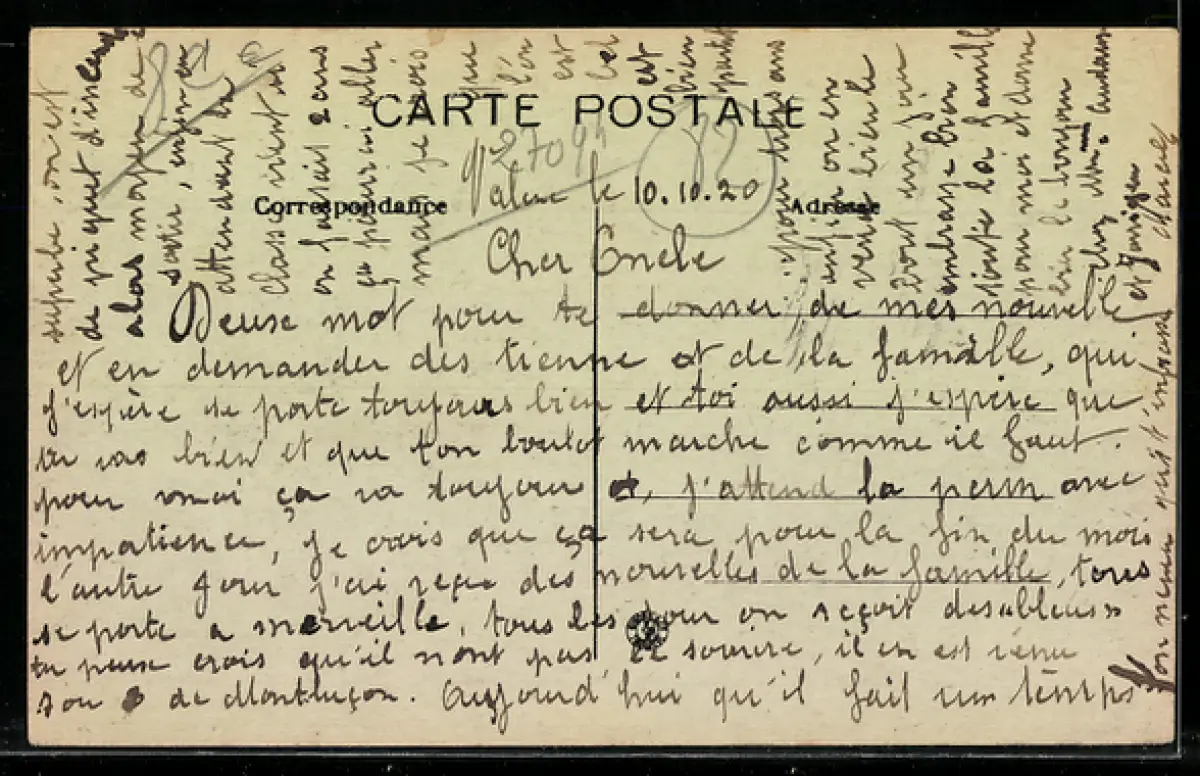 CARTE POSTALE
27094
82
Correspondance
Adresse
Valence le 10.10.20
Cher Oncle
Deuse mot pour te donner de mes nouvelle
et en demander des tienne et de la famille, qui
j'espère se porte toujours bien et toi aussi j'espère que
tu vas bien et que ton boulot marche comme il faut.
pour moi ça va toujour, j'attend la perm avec
impatience, je crois que ça sera pour la fin du mois
l'autre jour j'ai reçue des nouvelles de la famille, tous
se porte a merveille, tous les jour on reçoit des "bleus"
tu peuse crois qu'il n'ont pas le sourire, il en est venu
de Montluçon. Aujourd'hui qu'il fait un temps
superbe, on est
de piquet d'incendie
alors moyen de
sortir, enfin en
attendant la
classe vient
on faisait 2 ans
ça pourrai aller
mais je crois
que
l'on
est
bel
est
bien
pour trois ans
enfin on en
verra bien le
bout un jour
embrasse bien
toute la famille
pour moi et donne
bien le bonjour
chez
et
Ton neveu qui t'embrasse